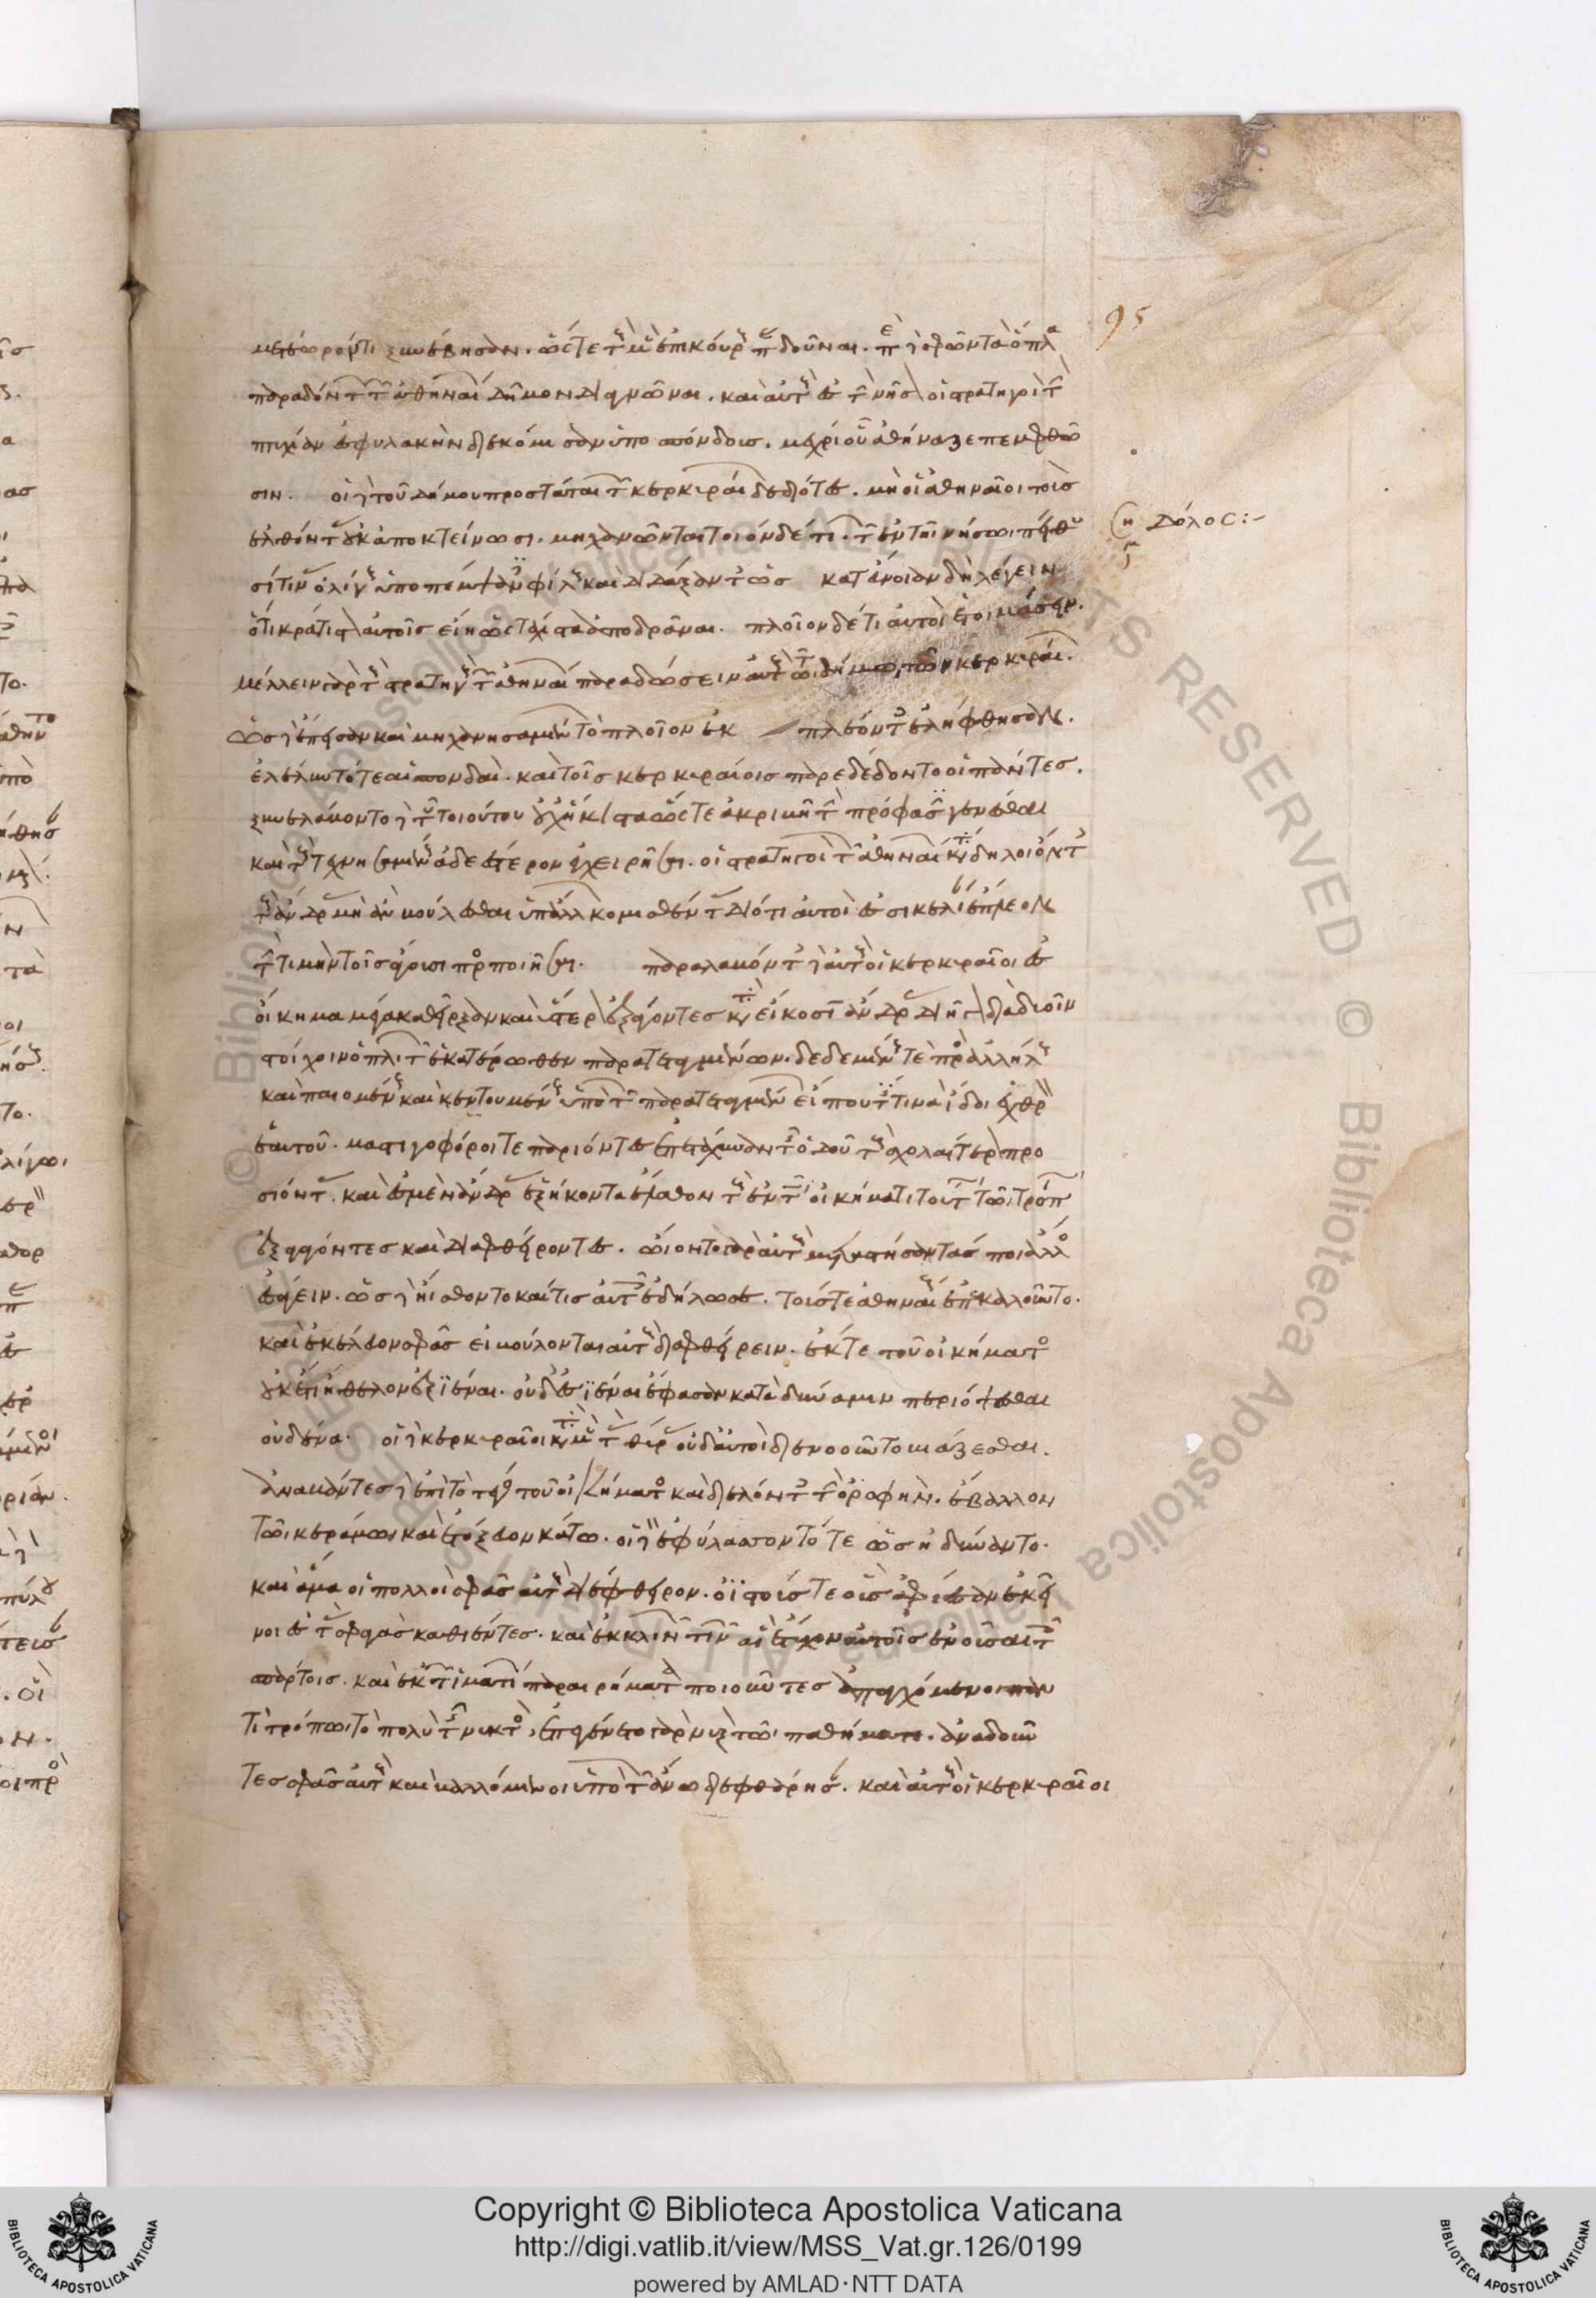 μετέωρόν τι ξυνέβησαν. ὥστε τοὺς μὲν ἐπικούρους παραδοῦναι. περὶ δὲ σφῶν τὰ ὅπλα
παραδόντων τὸν ἀθηναίων δῆμον διαγνῶναι. καὶ αὐτοὺς ἐς τὴν νῆσον οἱ στρατηγοὶ τὴν
πτυχίαν ἐς φυλακὴν διεκόμισαν ὑποσπόνδους. μέχρι οὗ ἀθήναζε πεμφθῶ
σιν. οἱ δὲ τοῦ δήμου προστάται τῶν κερκυραίων δεδιότες. μὴ οἱ ἀθηναῖοι τοὺς
ἐλθόντας οὐκ ἀποκτείνωσι. μηχανῶνται τοιόνδέ τι. τῶν ἐν τῆι νήσωι πείθου
σί τινας ὀλίγους ὑποπέμψαντες φίλους καὶ διδάξαντες ὡς κατ εὔνοιαν δὴ λέγειν
ὅτι κράτιστον αὐτοῖς εἴη ὡς τάχιστα ἀποδρᾶναι. πλοῖον δέ τι αὐτοὶ ἑτοιμάσειν.
μέλλειν γὰρ τοὺς στρατηγοὺς τῶν ἀθηναίων παραδώσειν αὐτοὺς τῶι δήμωι τῶν κερκυραίων.
ὡς δὲ ἔπεισαν καὶ μηχανησαμένων τὸ πλοῖον ἐκ πλέοντες ἐλήφθησαν.
ἐλέλυντό τε αἱ σπονδαὶ. καὶ τοῖς κερκυραίοις παρεδέδοντο οἱ πάντες.
ξυνελάβοντο δὲ τοῦ τοιούτου οὐχ ἥκιστα ὥστε ἀκριβῆ τὴν πρόφασιν γενέσθαι
καὶ τοὺς τεχνησαμένους ἀδεέστερον ἐγχειρῆσαι. οἱ στρατηγοὶ τῶν ἀθηναίων κατάδηλοι ὄντες
τοὺς ἄνδρας μὴ ἂν βούλεσθαι ὑπ ἄλλων κομισθέντας διότι αὐτοὶ ἐς σικελίαν ἔπλεον
τὴν τιμὴν τοῖς ἄγουσι προσποιῆσαι. παραλαβόντες δὲ αὐτοὺς οἱ κερκυραῖοι ἐς
οἴκημα μέγα καθεῖρξαν καὶ ὕστερον ἐξάγοντες κατὰ εἴκοσιν ἄνδρας διῆγον διὰ δυοῖν
στοίχοιν ὁπλιτῶν ἑκατέρωθεν παρατεταγμένων. δεδεμένους τε πρὸς ἀλλήλους
καὶ παιομένους καὶ κεντουμένους ὑπὸ τῶν παρατεταγμένων εἴ πού τίς τινα ἴδοι ἐχθρὸν
ἑαυτοῦ. μαστιγοφόροι τε παριόντες ἐπετάχυναν τῆς ὁδοῦ τοὺς σχολαίτερον προ
σιόντας. καὶ ἐς μὲν ἄνδρας ἑξήκοντα ἔλαθον τοὺς ἐν τῶι οἰκήματι τούτωι τῶι τρόπωι
ἐξαγαγόντες καὶ διαφθείροντες. ὤιοντο γὰρ αὐτοὺς μεταστήσοντάς ποι ἄλλοσε
ἄγειν. ὡς δὲ ἤισθοντο καί τις αὐτοῖς ἐδήλωσε. τούς τε ἀθηναίους ἐπεκαλοῦντο.
καὶ ἐκέλευον σφᾶς εἰ βούλονται αὐτοὺς διαφθείρειν. ἔκ τε τοῦ οἰκήματος
οὐκέτι ἤθελον ἐξϊέναι. οὐδ ἐσϊέναι ἔφασαν κατὰ δύναμιν περιόψεσθαι
οὐδένα. οἱ δὲ κερκυραῖοι κατὰ μὲν τὰς θύρας οὐδ αὐτοὶ διενοοῦντο βιάζεσθαι.
ἀναβάντες δὲ ἐπὶ τὸ τέγος τοῦ οἰκήματος καὶ διελόντες τὴν ὀροφήν. ἔβαλλον
τῶι κεράμωι καὶ ἐτόξευον κάτω. οἱ δὲ ἐφυλάσσοντό τε ὡς ἠδύναντο.
καὶ ἅμα οἱ πολλοὶ σφᾶς αὐτοὺς διέφθειρον. οἰστούς τε οὓς ἀφίεσαν ἐκεῖ
νοι ἐς τὰς σφαγὰς καθιέντες. καὶ ἐκ κλινῶν τινῶν αἳ ἔτυχον αὐτοῖς ἐνοῦσαι τοῖς
σπάρτοις. καὶ ἐκ τῶν ἱματίων παραιρήματα ποιοῦντες ἀπαγχόμενοι παν
τὶ τρόπωι τὸ πολὺ τῆς νυκτὸς, ἐπεγένετο γὰρ νὺξ τῶι παθήματι. ἀναδοῦν
τες σφᾶς αὐτοὺς καὶ βαλλόμενοι ὑπὸ τῶν ἄνω διεφθάρησαν. καὶ αὐτοὺς οἱ κερκυραῖοι
95
δόλος:-